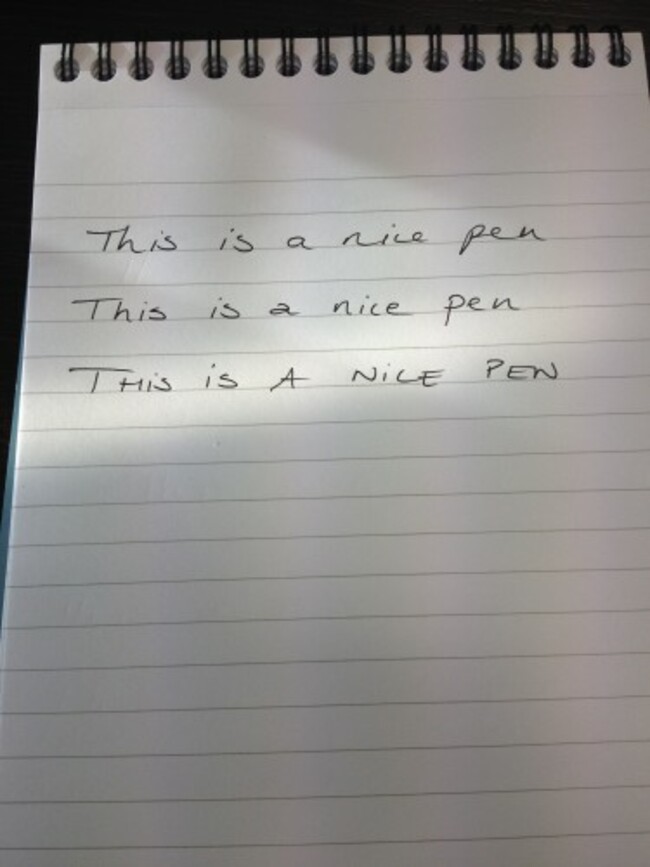 This is a nice pen
This is a nice pen
THiS iS A NiCE PEN